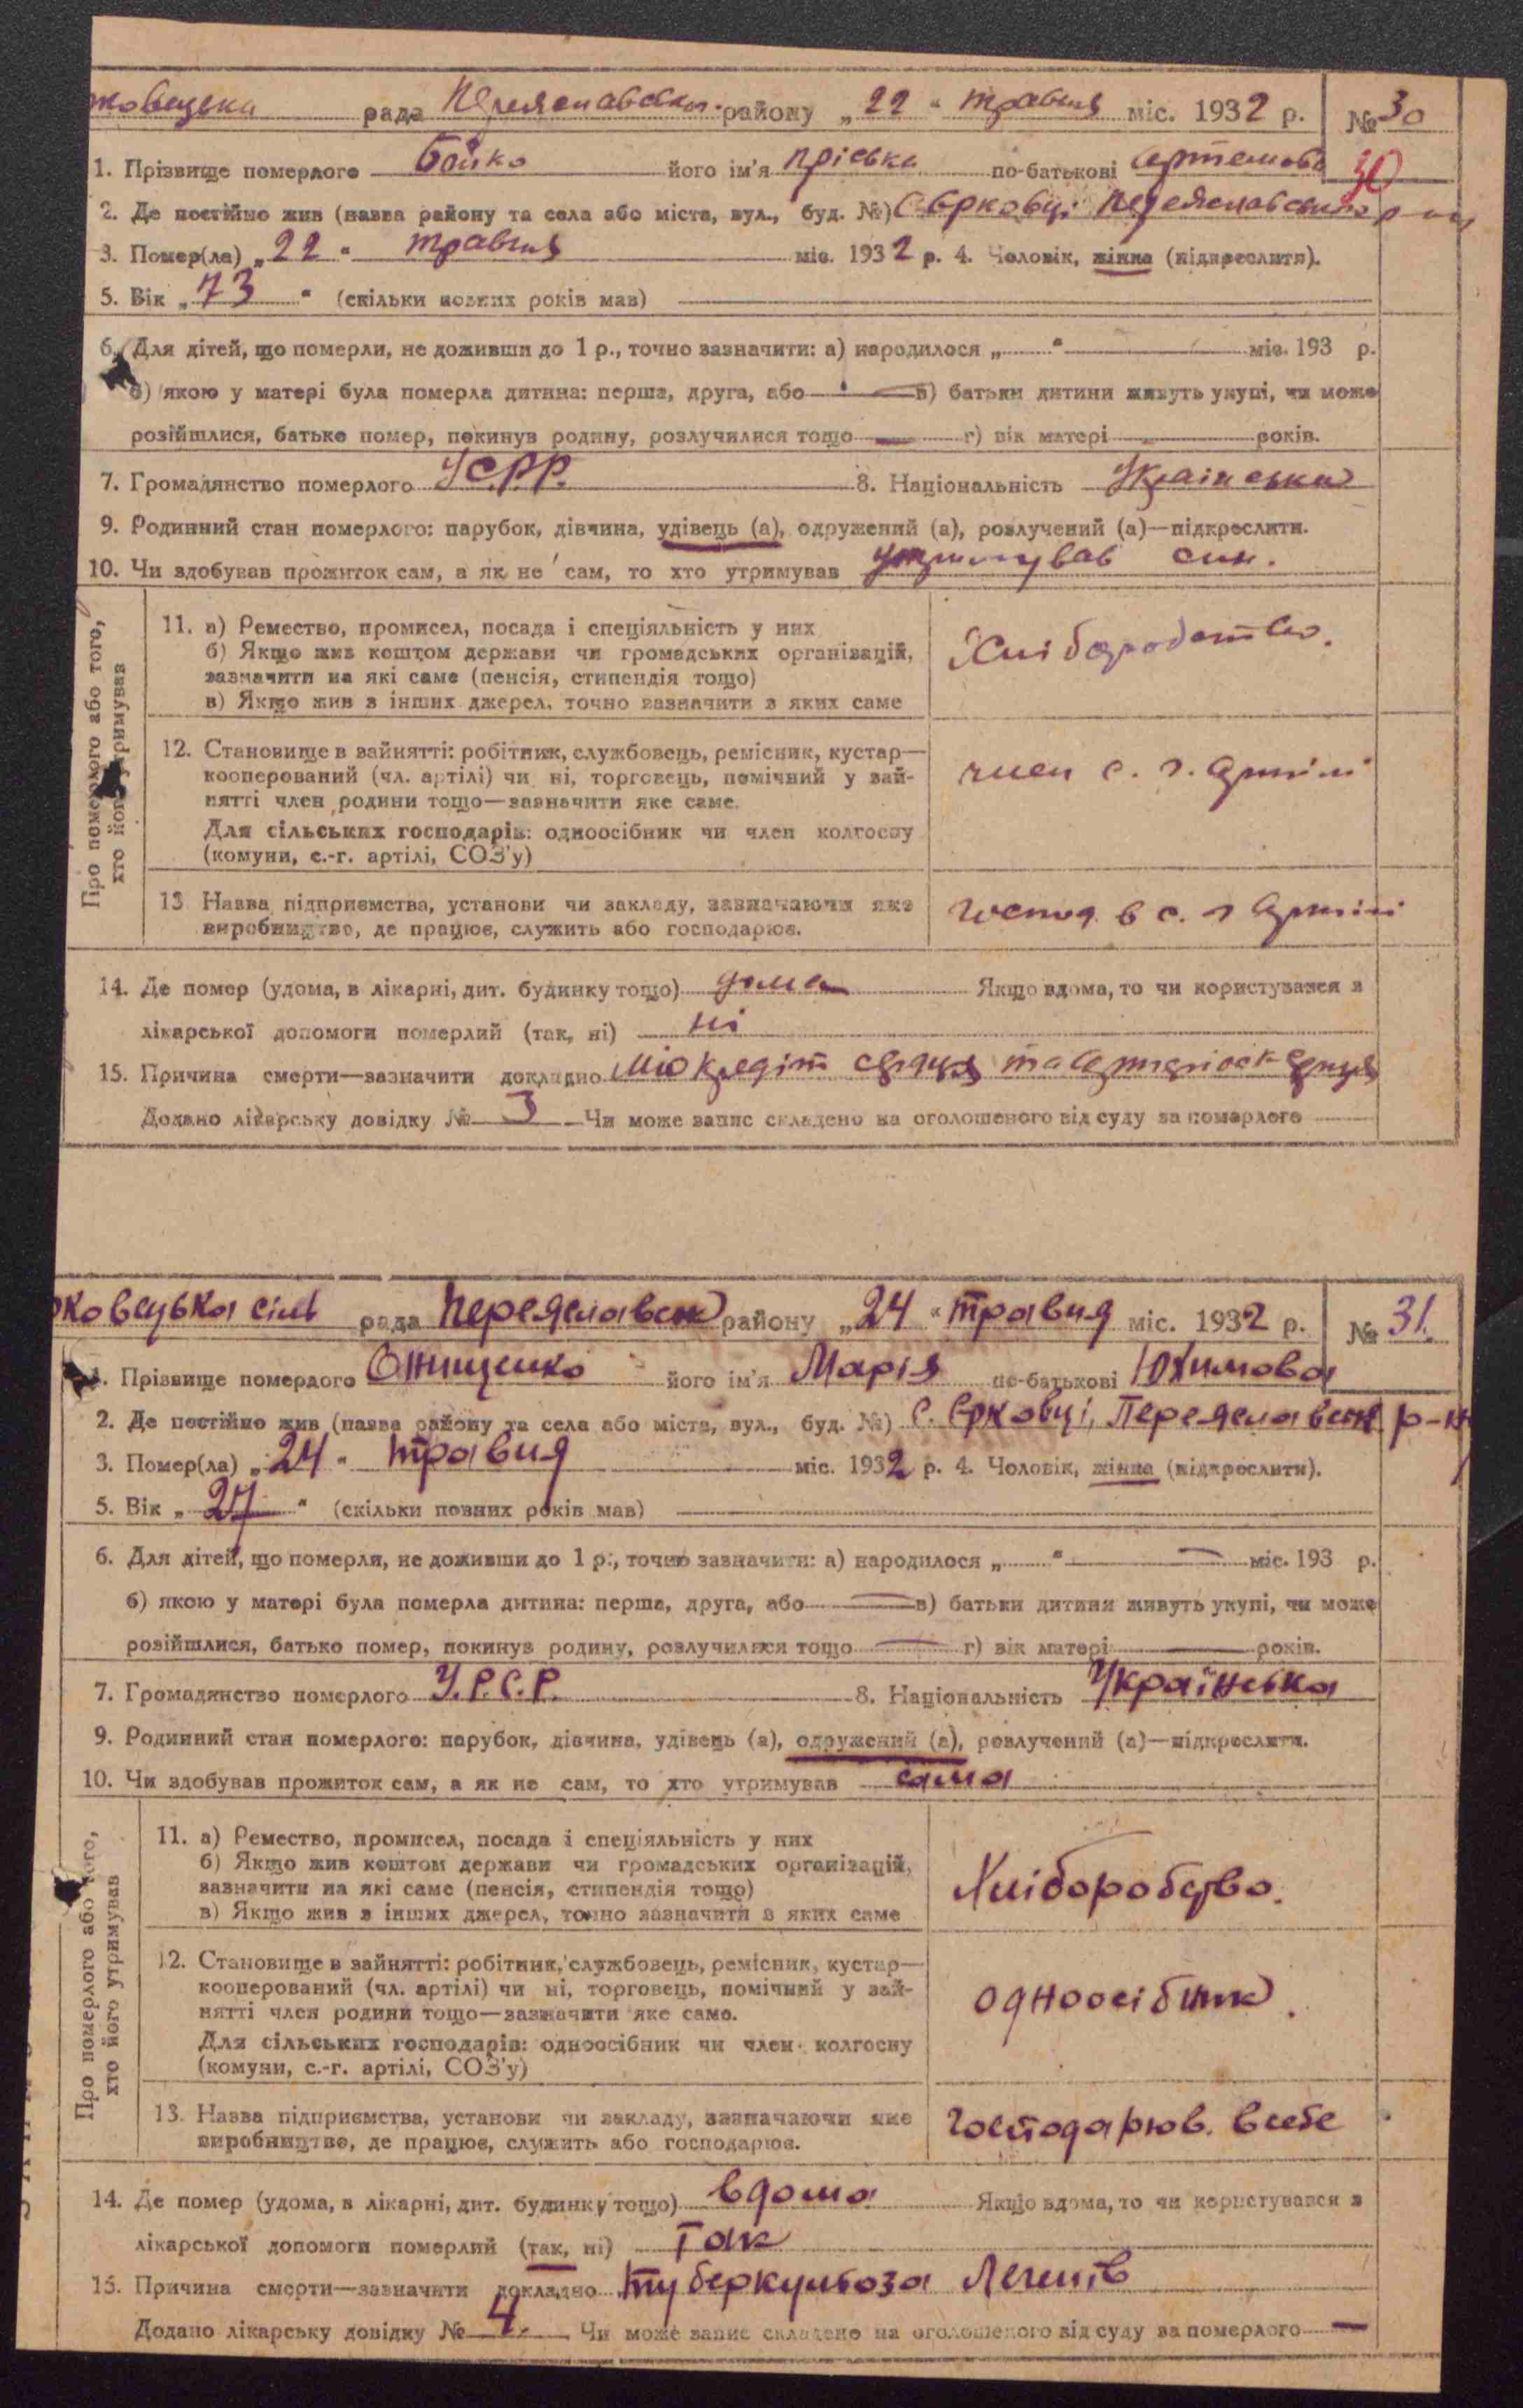 рада Переяславськ. району „22“ травня міс. 1932 р. № 30
1. Прізвище померлого Бойко його ім'я Пріська по-батькові Артемова 30
2. Де постійно жив (назва району та села або міста, вул., буд. №) С Єрковці Переяславського р-ну
3. Помер(ла) „22“ травня міс. 1932 р. 4. Чоловік, жінка (підкреслити).
5. Вік „73“ (скільки повних років мав)
6. Для дітей, що померли, не доживши до 1 р., точно зазначити: а) народилося „ “ міс. 193 р.
б) якою у матері була померла дитина: перша, друга, або — в) батьки дитини живуть укупі, чи може
розійшлися, батько помер, покинув родину, розлучилися тощо — г) вік матері — років.
7. Громадянство померлого УС.Р.Р. 8. Національність Українська
9. Родинний стан померлого: парубок, дівчина, удівець (а), одружений (а), розлучений (а)—підкреслити.
10. Чи здобував прожиток сам, а як не сам, то хто утримував утримував син.
Про померлого або того, хто його утримував
11. а) Ремество, промисел, посада і спеціяльність у них
б) Якщо жив коштом держави чи громадських організацій,
зазначити на які саме (пенсія, стипендія тощо)
в) Якщо жив з інших джерел, точно зазначити з яких саме
Хліборобство.
12. Становище в зайнятті: робітник, службовець, ремісник, кустар—
кооперований (чл. артілі) чи ні, торговець, помічний у зай-
нятті член родини тощо—зазначити яке саме.
Для сільських господарів: одноосібник чи член колгоспу
(комуни, с.-г. артілі, СОЗ'у)
член с. г. артілі
13 Назва підприємства, установи чи закладу, зазначаючи яке
виробництво, де працює, служить або господарює.
господ. в с. г артілі
14. Де помер (удома, в лікарні, дит. будинку тощо) дома Якщо вдома, то чи користувався з
лікарської допомоги померлий (так, ні) ні
15. Причина смерти—зазначити докладно серця та
Додано лікарську довідку № 3 Чи може запис складено на оголошеного від суду за померлого
рковецька сіль рада Переяславськ району „24“ травня міс. 1932 р. № 31.
1. Прізвище померлого Онищенко його ім'я Марія по-батькові Юхимова
2. Де постійно жив (назва району та села або міста, вул., буд. №) С. Єрковці, Переяславськ р-н
3. Помер(ла) „24“ травня міс. 1932 р. 4. Чоловік, жінка (підкреслити).
5. Вік „27“ (скільки повних років мав)
6. Для дітей, що померли, не доживши до 1 р., точно зазначити: а) народилося „ “ — міс. 193 р.
б) якою у матері була померла дитина: перша, друга, або — в) батьки дитини живуть укупі, чи може
розійшлися, батько помер, покинув родину, розлучилися тощо — г) вік матері — років.
7. Громадянство померлого У.Р.С.Р. 8. Національність Українська
9. Родинний стан померлого: парубок, дівчина, удівець (а), одружений (а), розлучений (а)—підкреслити.
10. Чи здобував прожиток сам, а як не сам, то хто утримував сама
Про померлого або того, хто його утримував
11. а) Ремество, промисел, посада і спеціяльність у них
б) Якщо жив коштом держави чи громадських організацій,
зазначити на які саме (пенсія, стипендія тощо)
в) Якщо жив з інших джерел, точно зазначити з яких саме
Хліборобство.
12. Становище в зайнятті: робітник, службовець, ремісник, кустар—
кооперований (чл. артілі) чи ні, торговець, помічний у зай-
нятті член родини тощо—зазначити яке саме.
Для сільських господарів: одноосібник чи член колгоспу
(комуни, с.-г. артілі, СОЗ'у)
одноосібник.
13. Назва підприємства, установи чи закладу, зазначаючи яке
виробництво, де працює, служить або господарює.
Господарюв. в себе
14. Де помер (удома, в лікарні, дит. будинку тощо) вдома Якщо вдома, то чи користувався з
лікарської допомоги померлий (так, ні) Так
15. Причина смерти—зазначити докладно Туберкульоза Легенів
Додано лікарську довідку № 4. Чи може запис складено на оголошеного від суду за померлого —